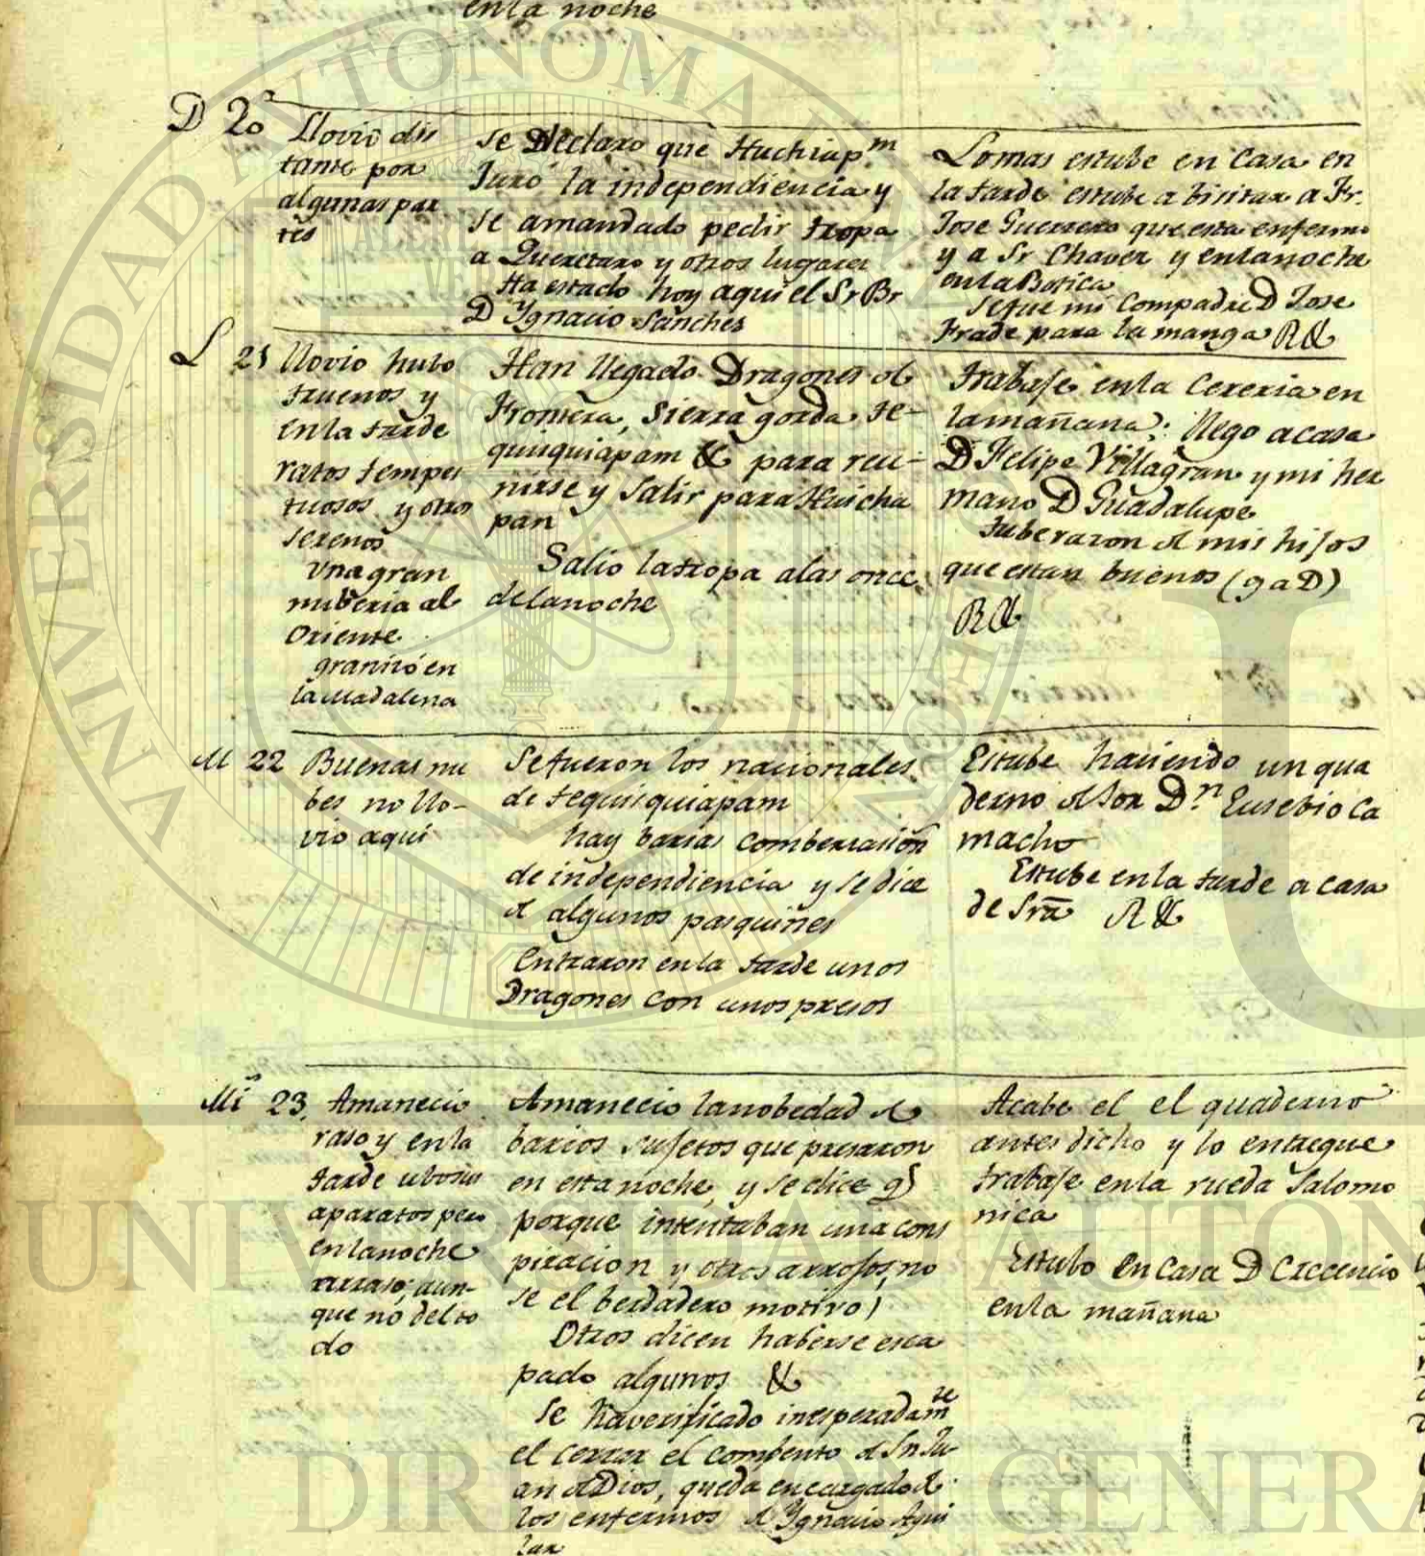 en la noche
D 20
Llovio dis
tante por
algunas par
tes
se Declaro que Huchiap.m
Juró la independiencia y
se amandado pedir tropa
a Queretaro y otros lugares
Ha estado hoy aqui el Sr Br
D Ygnacio Sanches
Lomas estube en Casa en
la tarde estube a bisitar a Fr.
Jose Guerrero que esta enfermo
y a Sr Chavez y en la noche
en la Botica
se fue mi Compadre D Jose
Frade para la manga R&
L 21
llovio hubo
truenos y
en la tarde
ratos tempes
tuosos y otros
serenos
una gran
nuberia al
Oriente
granizó en
la Madalena
Han llegado Dragones de
Frontera, Sierra gorda, te-
quisquiapam & para reu-
nirse y Salir para Huicha
pan
Salio la tropa alas once
de la noche
trabaje en la Cereria en
la mañana; llego a casa
D Felipe Villagran y mi her
mano D Guadalupe
tube razon de mis hijos
que estan buenos (g a D)
R&
M 22
Buenas nu
bes no llo-
vio aqui
Se fueron los nacionales
de tequisquiapam
hay barias combersasiōn
de independiencia y se dice
de algunos pasquines
Entraron en la tarde unos
Dragones con unos presos
Estube haciendo un qua
derno de Sor D.n Eusebio Ca
macho
Estube en la tarde a casa
de Srā R&
Mi 23
Amanecio
raso y en la
tarde ubo
aparatos pero
en la noche
raso, aun-
que no del to
do
Amanecio la nobedad de
barios sujetos que presaron
en esta noche, y se dice q
porque intentaban una cons
piracion y otros arrojos, no
se el berdadero motivo)
Otros dicen haberse esca
pado algunos &
Se ha verificado inesperadamte
el cerrar el Combento de Sn Ju
an de Dios, queda encargado de
los enfermos D Ygnacio Agui
lar
Acabe el el quaderno
antes dicho y lo entregue
trabaje en la rueda Salomo
nica
Estubo en Casa D Crecencio
en la mañana
UNIVERSIDAD AUTONOMA
UNIVERSIDAD AUTON
DIRECCION GENERA